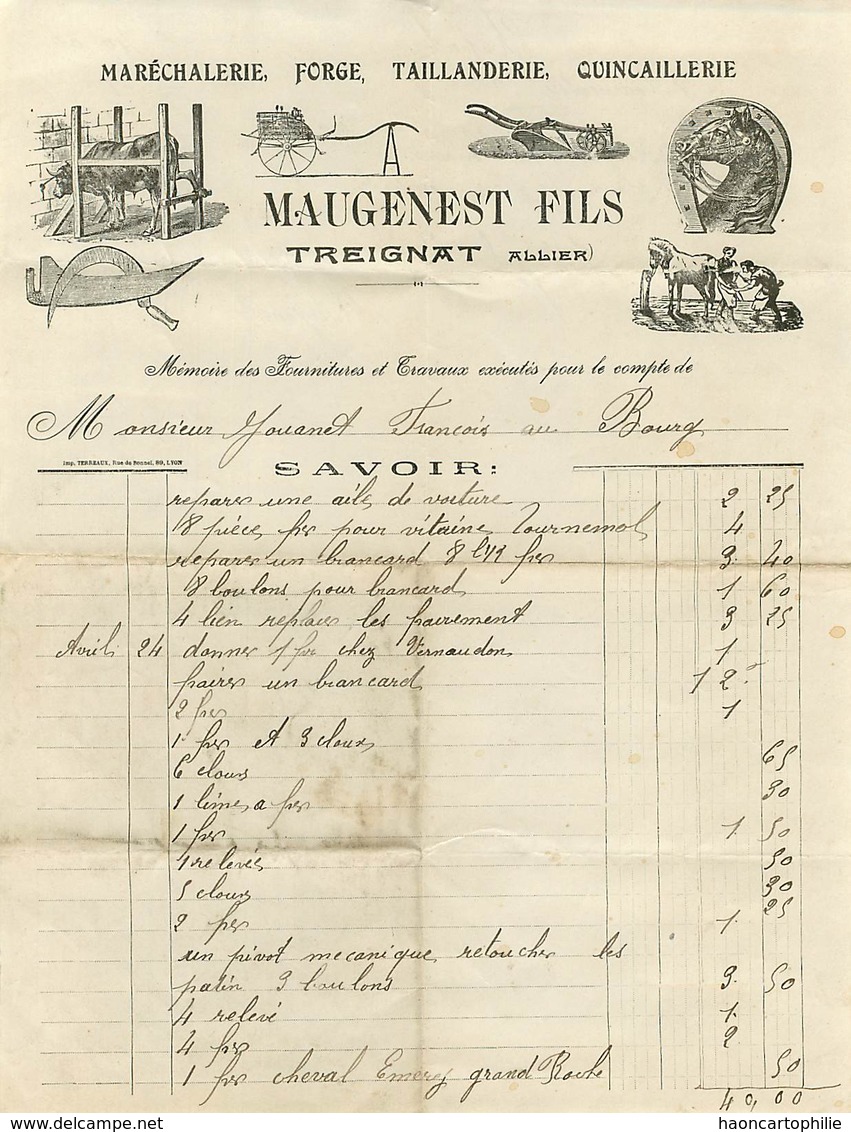 MARÉCHALERIE, FORGE, TAILLANDERIE, QUINCAILLERIE
MAUGENEST FILS
TREIGNAT ALLIER)
Mémoire des Fournitures et Travaux exécutés pour le compte de
Monsieur Jouanet Francois au Bourg
Imp. TERREAUX, Rue de Bonnel, 89, LYON
SAVOIR:
reparer une aile de voiture 2 25
8 pièce fer pour Tournemol 4
reparer un brancard 8 fer 3. 40
8 boulons pour brancard 1 60
4 lien replacer les 3 25
Avril 24 donner 1 fer chez Vernaudon 1
faires un brancard 12
2 fers 1
1 fer et 3 clous
6 clous 65
1 a fer 30
1 fer 1. 50
1 relevés 50
5 clous 30
2 fer 1. 25
un pivot mecanique, retoucher les
patin 3 boulons 3. 50
4 relevé 1.
4 fer 2
1 fer cheval Emerez grand Roche 50
40,00
haoncartophile